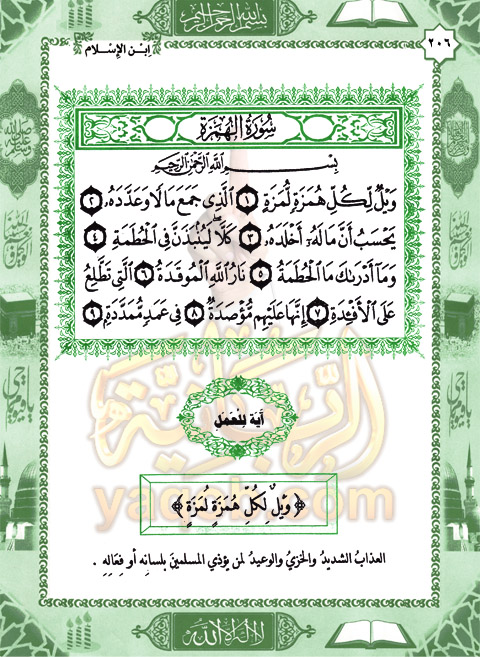 بسم الله الرحمن الرحيم
٢٠٦
ابن الإسلام
سُورَةُ الهُمَزَةِ
بِسْمِ اللَّهِ الرَّحْمَٰنِ الرَّحِيمِ
وَيْلٌ لِّكُلِّ هُمَزَةٍ لُّمَزَةٍ ١ الَّذِي جَمَعَ مَالًا وَعَدَّدَهُۥ ٢
يَحْسَبُ أَنَّ مَالَهُۥٓ أَخْلَدَهُۥ ٣ كَلَّا ۖ لَيُنۢبَذَنَّ فِي الْحُطَمَةِ ٤
وَمَآ أَدْرَىٰكَ مَا الْحُطَمَةُ ٥ نَارُ اللَّهِ الْمُوقَدَةُ ٦ الَّتِي تَطَّلِعُ
عَلَى الْأَفْـِٔدَةِ ٧ إِنَّهَا عَلَيْهِم مُّؤْصَدَةٌ ٨ فِي عَمَدٍ مُّمَدَّدَةٍۭ ٩
آيَة لِلعَمَلِ
yaqob.com
﴿ وَيْلٌ لِكُلِّ هُمَزَةٍ لُمَزَةٍ ﴾
العذابُ الشديدُ والخزيُ والوعيدُ لمن يؤذي المسلمينَ بلسانِه أو فِعَالِهِ .
لا إله إلا الله